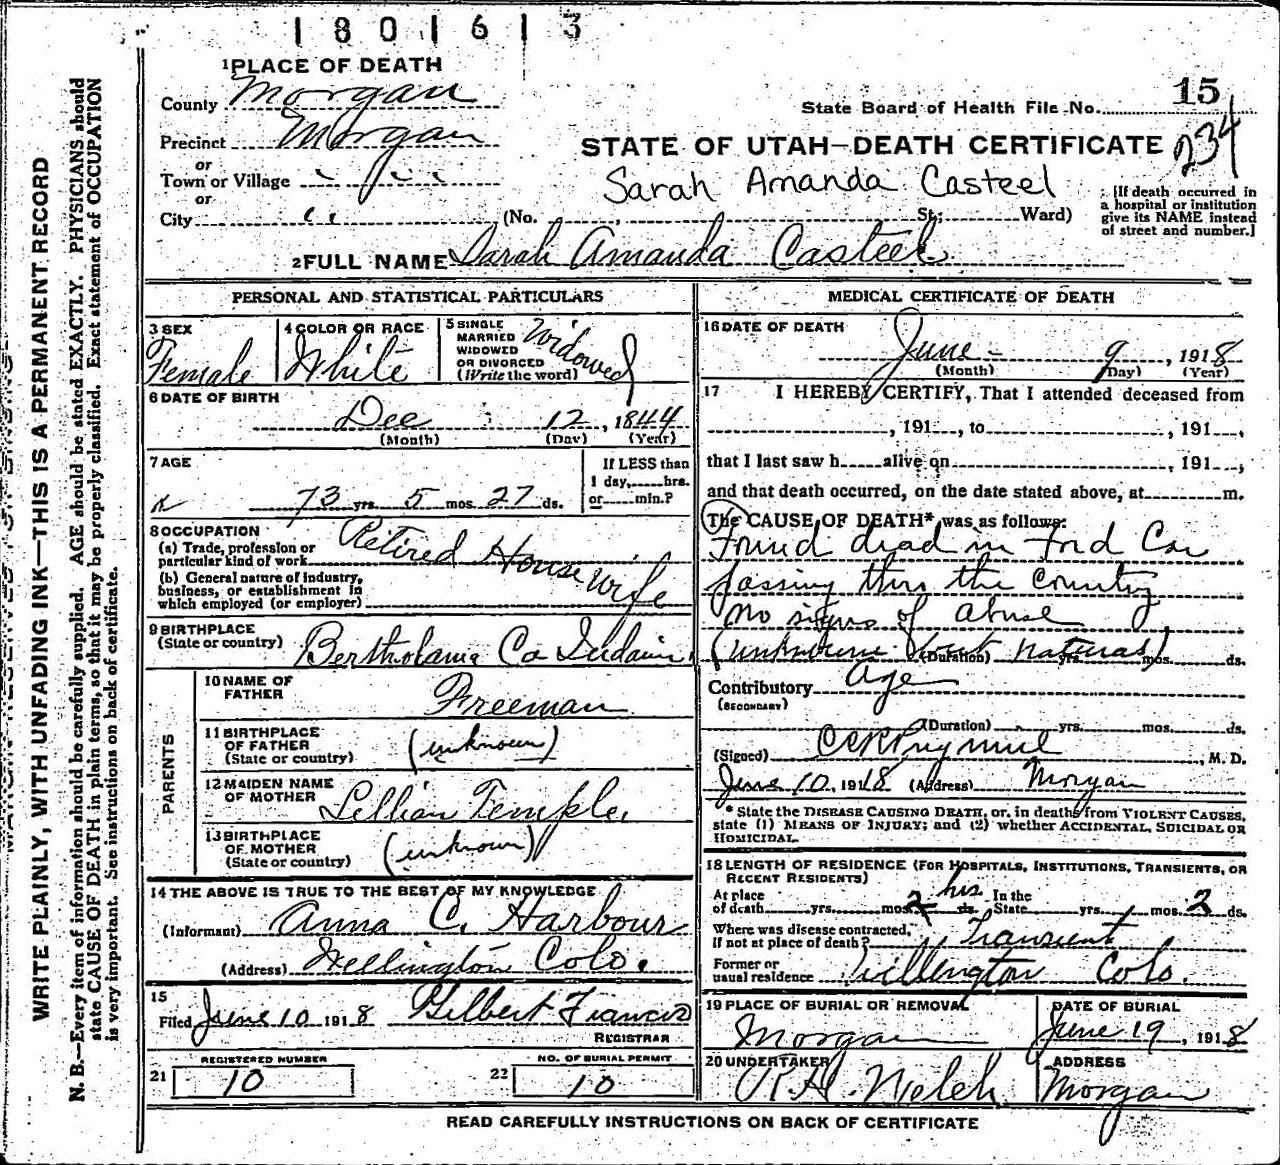 1801613
1 PLACE OF DEATH
County Morgan
State Board of Health File No. 15
Precinct Morgan
234
STATE OF UTAH—DEATH CERTIFICATE
or
Town or Village " "
Sarah Amanda Casteel
or
City " (No. , St; Ward)
[If death occurred in
a hospital or institution
give its NAME instead
of street and number.]
2 FULL NAME Sarah Amanda Casteel
PERSONAL AND STATISTICAL PARTICULARS
3 SEX
Female
4 COLOR OR RACE
White
5 SINGLE
MARRIED
WIDOWED
OR DIVORCED
(Write the word)
Widowed
6 DATE OF BIRTH
Dec 12, 1844
(Month) (Day) (Year)
7 AGE
73 yrs. 5 mos. 27 ds.
If LESS than
1 day, hrs.
or min.?
8 OCCUPATION
(a) Trade, profession or
particular kind of work
Retired House wife
(b) General nature of industry,
business, or establishment in
which employed (or employer)
9 BIRTHPLACE
(State or country)
Bertholama Co Indain
PARENTS
10 NAME OF
FATHER
Freeman
11 BIRTHPLACE
OF FATHER
(State or country)
(unknown)
12 MAIDEN NAME
OF MOTHER
Lillian Temple.
13 BIRTHPLACE
OF MOTHER
(State or country)
(unknown)
14 THE ABOVE IS TRUE TO THE BEST OF MY KNOWLEDGE
(Informant) Anna C. Harbour
(Address) Wellington Colo.
15
Filed June 10 1918 Gilbert Francis
REGISTRAR
REGISTERED NUMBER
21 10
NO. OF BURIAL PERMIT
22 10
MEDICAL CERTIFICATE OF DEATH
16 DATE OF DEATH
June - 9, 1918
(Month) (Day) (Year)
17 I HEREBY CERTIFY, That I attended deceased from
, 191 , to , 191 ,
that I last saw h alive on , 191 ,
and that death occurred, on the date stated above, at m.
The CAUSE OF DEATH* was as follows:
Found dead in Ford Car
passing thru the country
No signs of abuse
(unknown but natural)
(Duration) yrs. mos. ds.
Contributory Age
(SECONDARY)
(Duration) yrs. mos. ds.
(Signed) , M. D.
June 10, 1918 (Address) Morgan
* State the DISEASE CAUSING DEATH, or, in deaths from VIOLENT CAUSES,
state (1) MEANS OF INJURY; and (2) whether ACCIDENTAL, SUICIDAL OR
HOMICIDAL.
18 LENGTH OF RESIDENCE (FOR HOSPITALS, INSTITUTIONS, TRANSIENTS, OR
RECENT RESIDENTS)
At place
of death yrs. mos. 2 hrs ds.
In the
State yrs. mos. 2 ds.
Where was disease contracted,
if not at place of death?
Transient
Former or
usual residence
Willengton Colo.
19 PLACE OF BURIAL OR REMOVAL
Morgan
DATE OF BURIAL
June 19, 1918
20 UNDERTAKER
R. H. Welch
ADDRESS
Morgan
READ CAREFULLY INSTRUCTIONS ON BACK OF CERTIFICATE
WRITE PLAINLY, WITH UNFADING INK—THIS IS A PERMANENT RECORD
N. B.—Every item of information should be carefully supplied. AGE should be stated EXACTLY. PHYSICIANS should
state CAUSE OF DEATH in plain terms, so that it may be properly classified. Exact statement of OCCUPATION
is very important. See instructions on back of certificate.